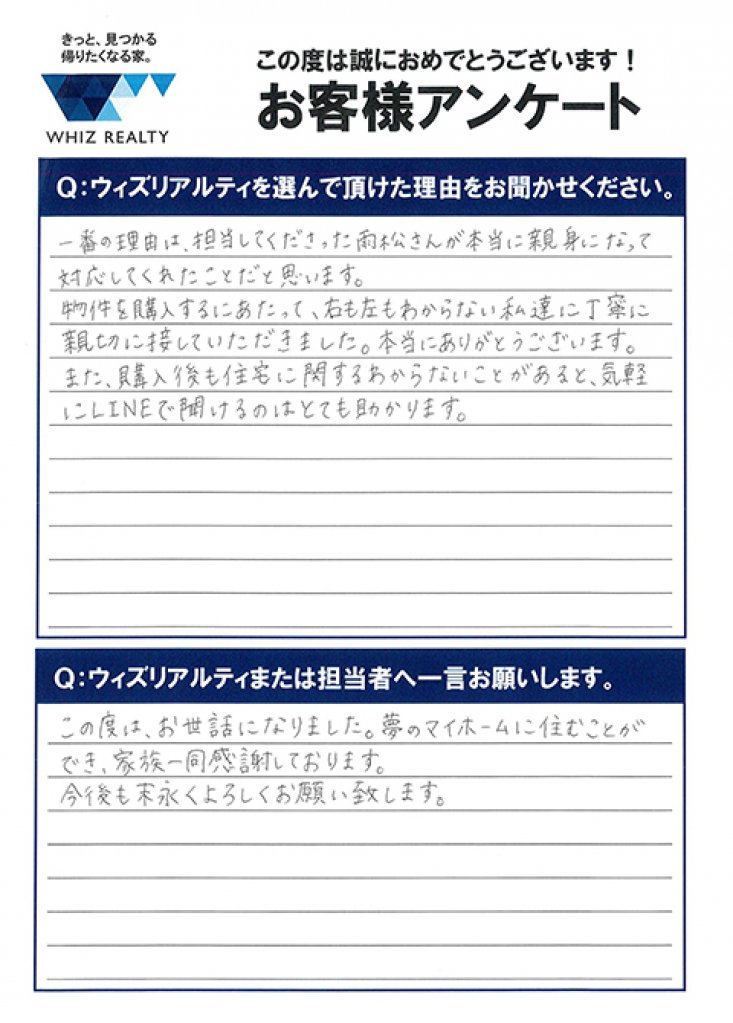 きっと、見つかる
帰りたくなる家。
WHIZ REALTY
この度は誠におめでとうございます！
お客様アンケート
Q：ウィズリアルティを選んで頂けた理由をお聞かせください。
一番の理由は、担当してくださった雨松さんが本当に親身になって
対応してくれたことだと思います。
物件を購入するにあたって、右も左もわからない私達に丁寧に
親切に接していただきました。本当にありがとうございます。
また、購入後も住宅に関するわからないことがあると、気軽
にLINEで聞けるのはとても助かります。
Q：ウィズリアルティまたは担当者へ一言お願いします。
この度は、お世話になりました。夢のマイホームに住むことが
でき、家族一同感謝しております。
今後も末永くよろしくお願い致します。